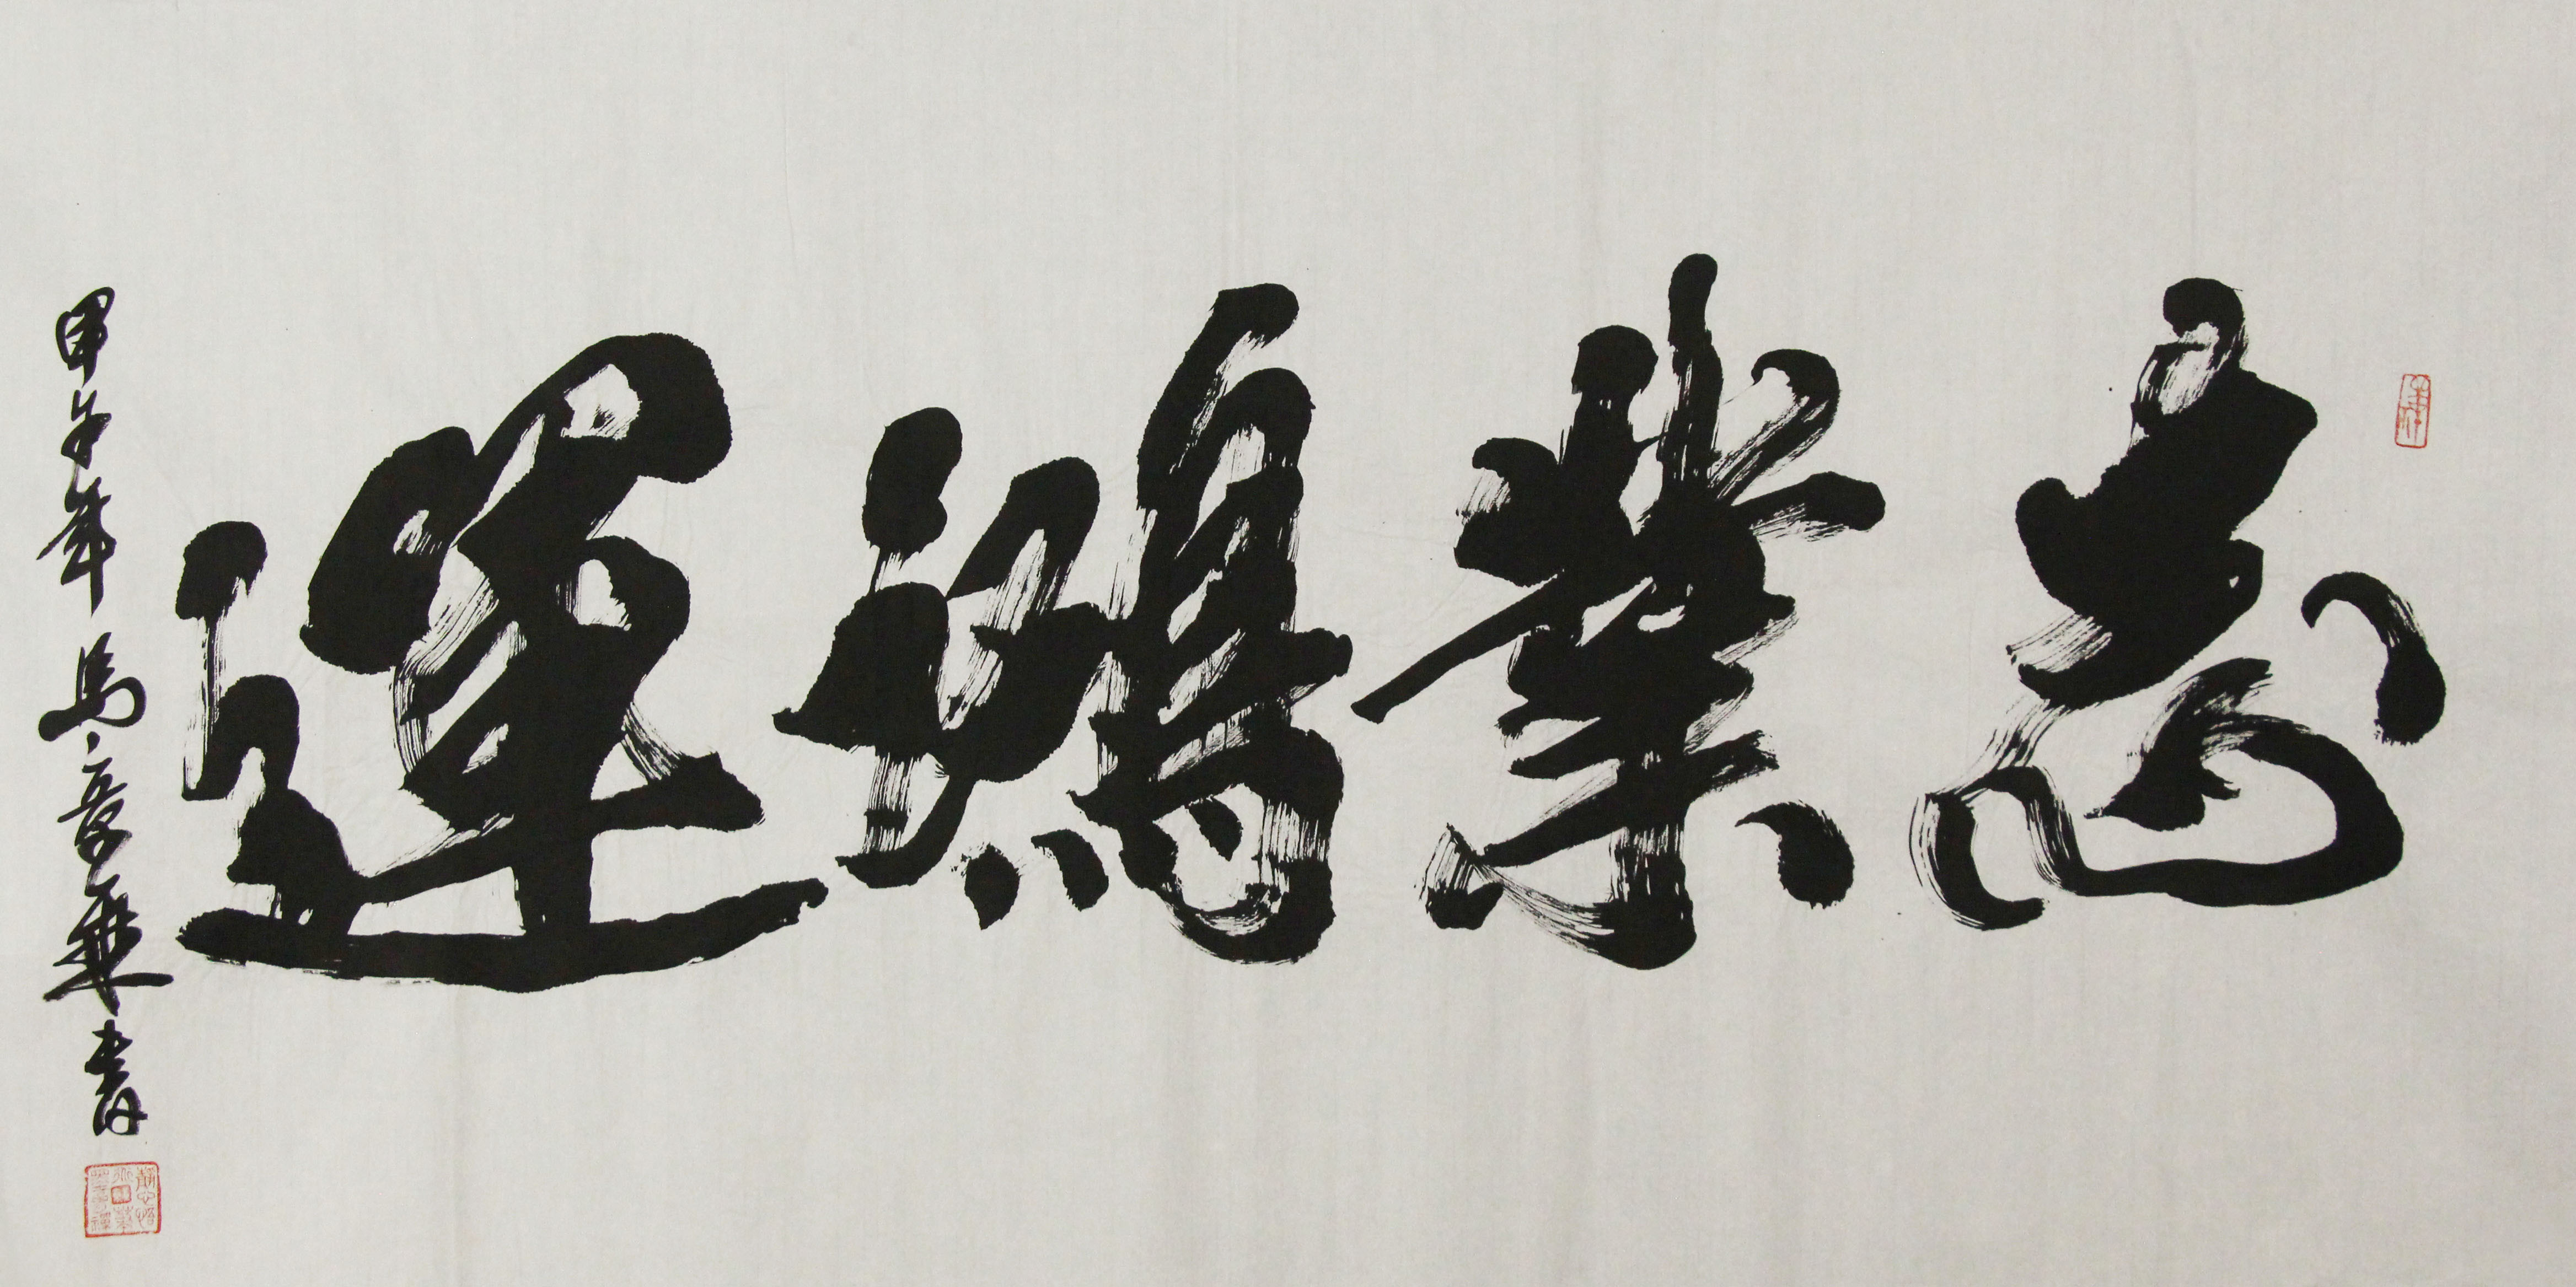 志業鴻運
甲午年馬華書